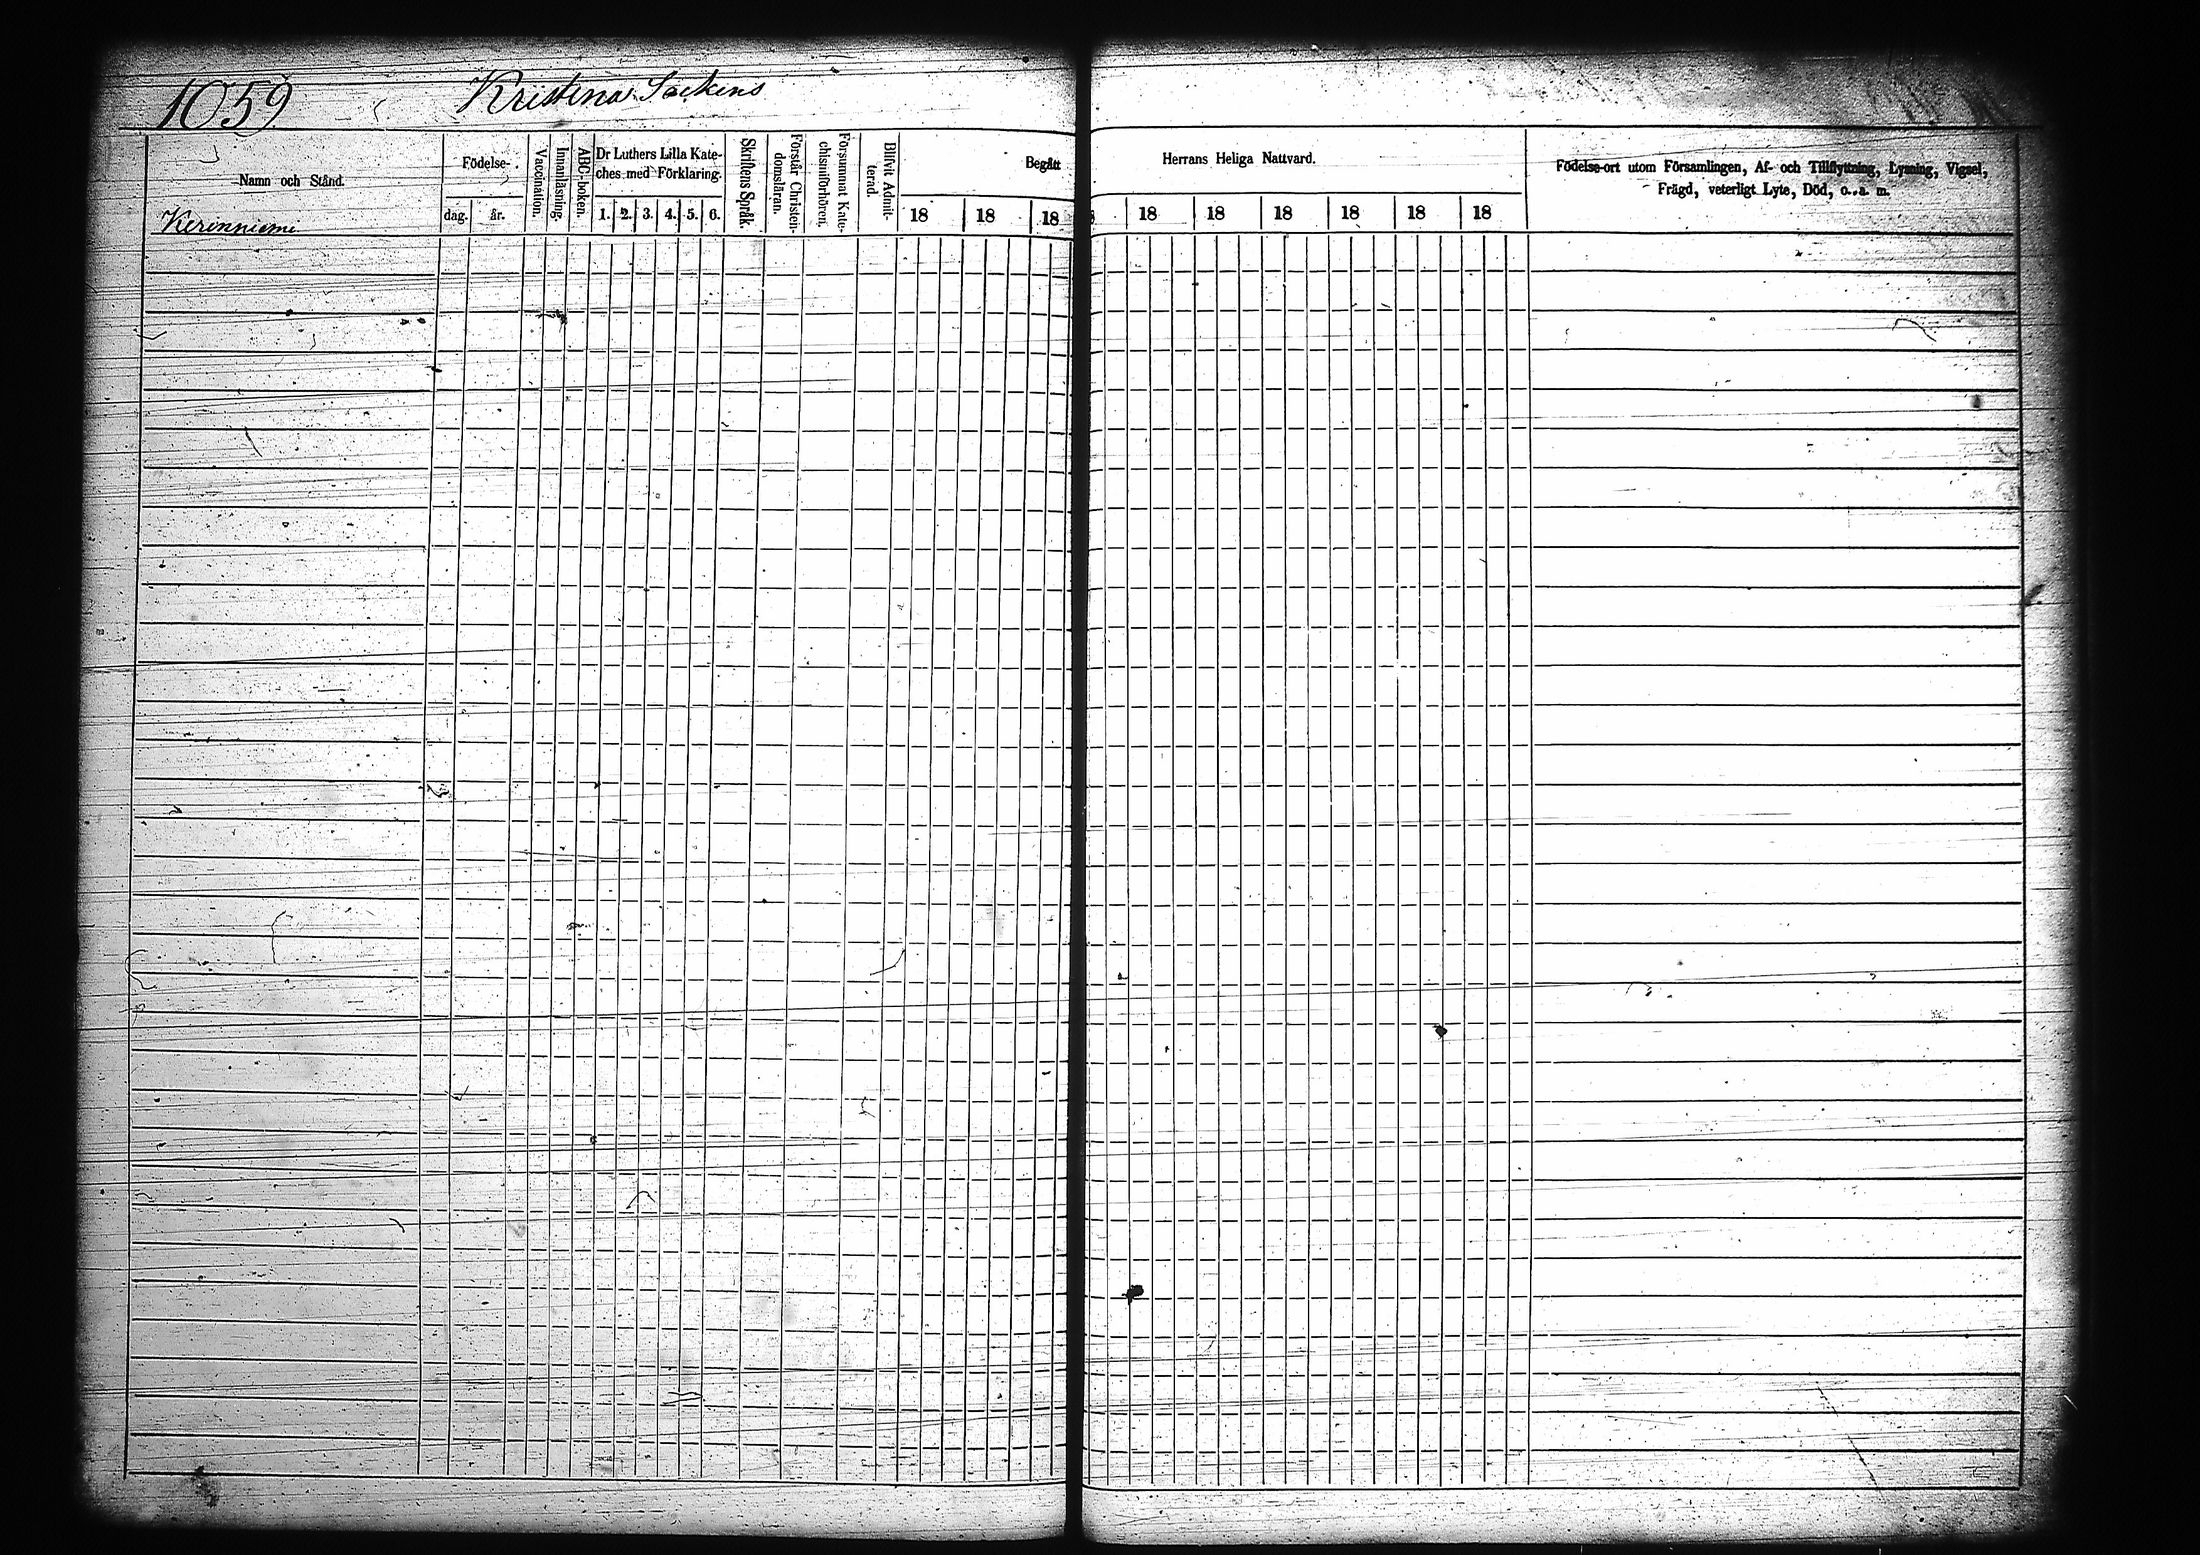 1059 Kristina Sackens
Namn och Stånd.
Kerinniemi
Födelse-
dag. år.
Vaccination.
Innanläsning.
ABC-boken.
Dr Luthers Lilla Kate-
ches med Förklaring.
1. 2. 3. 4. 5. 6.
Skriftens Språk.
Förstår Christen-
domsläran.
Försummat Kate-
chismiförhören.
Blifvit Admit-
terad.
Begått Herrans Heliga Nattvard.
18 18 18 18 18 18 18 18 18
Födelse-ort utom Församlingen, Af- och Tillflyttning, Lysning, Vigsel,
Frägd, veterligt Lyte, Död, o. a. m.